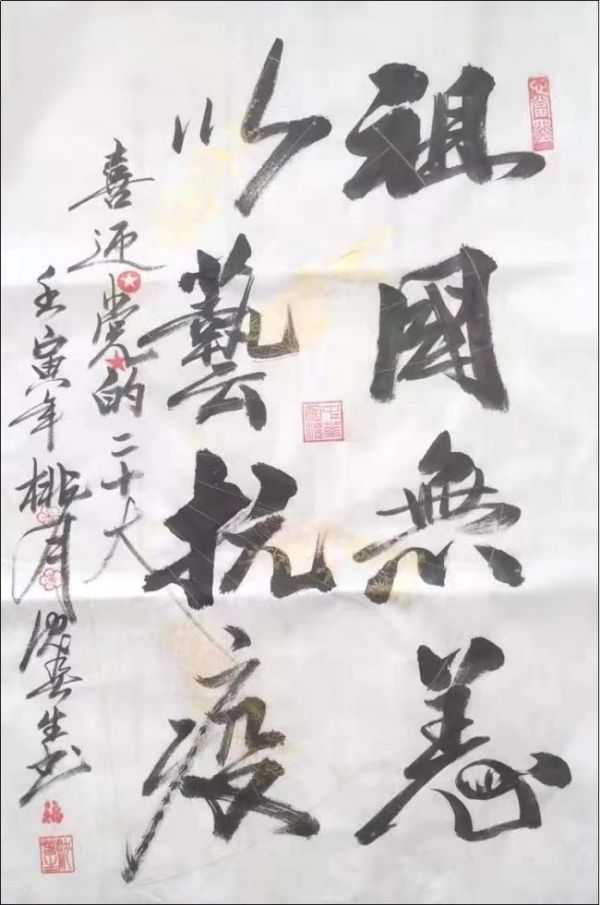 祖國無恙
以藝抗疫
喜迎党的二十大
壬寅年桃月
生书
福